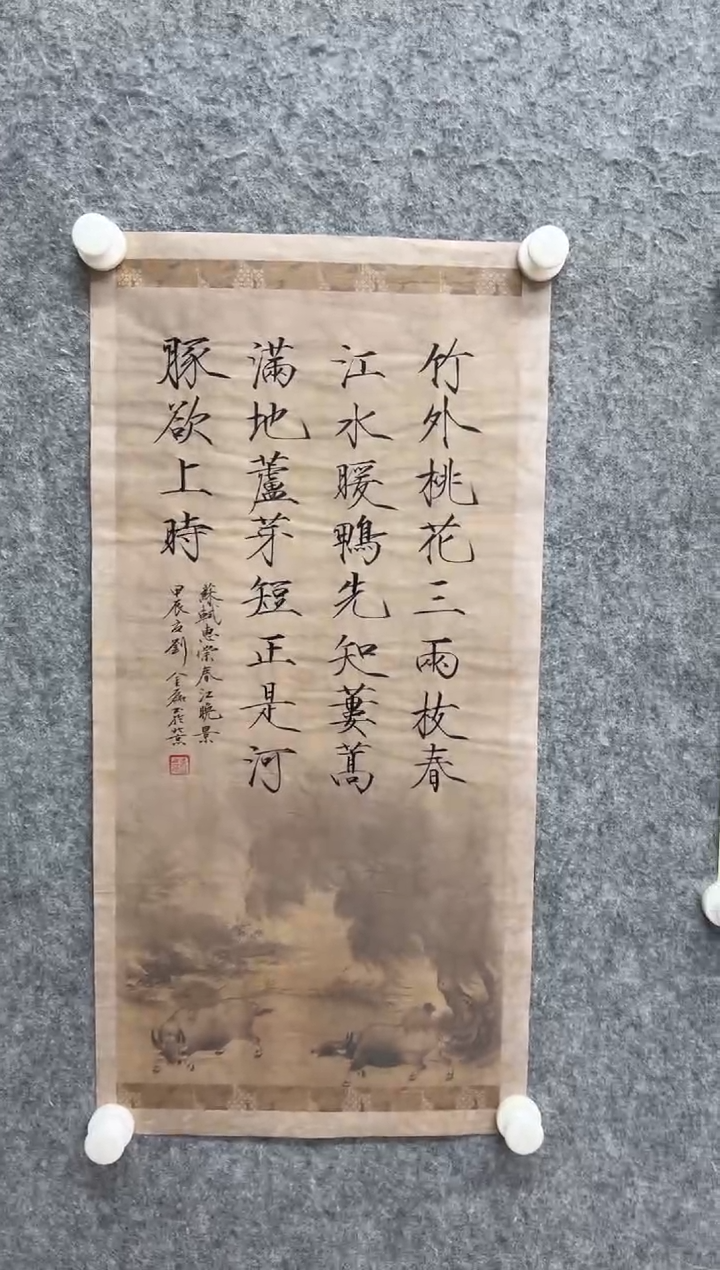 竹外桃花三兩枝春
江水暖鴨先知蔞蒿
滿地蘆芽短正是河
豚欲上時
蘇軾惠崇春江晚景
甲辰夏劉金磊